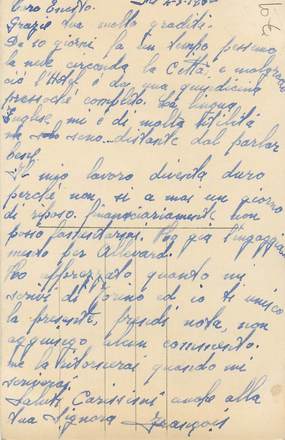 Caro Ernesto.
Grazie tua molto gradita.
Da 20 giorni fa un tempo pessimo,
la neve circonda la Città, e malgrado
ciò l'Hotel è da una quindicina
pressoché completo. La lingua
Inglese mi è di molta utilità
ma sono distante dal parlar
bene.
Il mio lavoro diventa duro
perché non si a mai un giorno
di riposo. finanziariamente non
posso
mento per Allevard.
Ho apprezzato quando mi
scrivi di Torino ed io ti unisco
la presente, prendi nota, non
aggiungo alcun commento.
me la ritornerai quando mi
scriverai.
Saluti Carissimi anche alla
tua Signora François